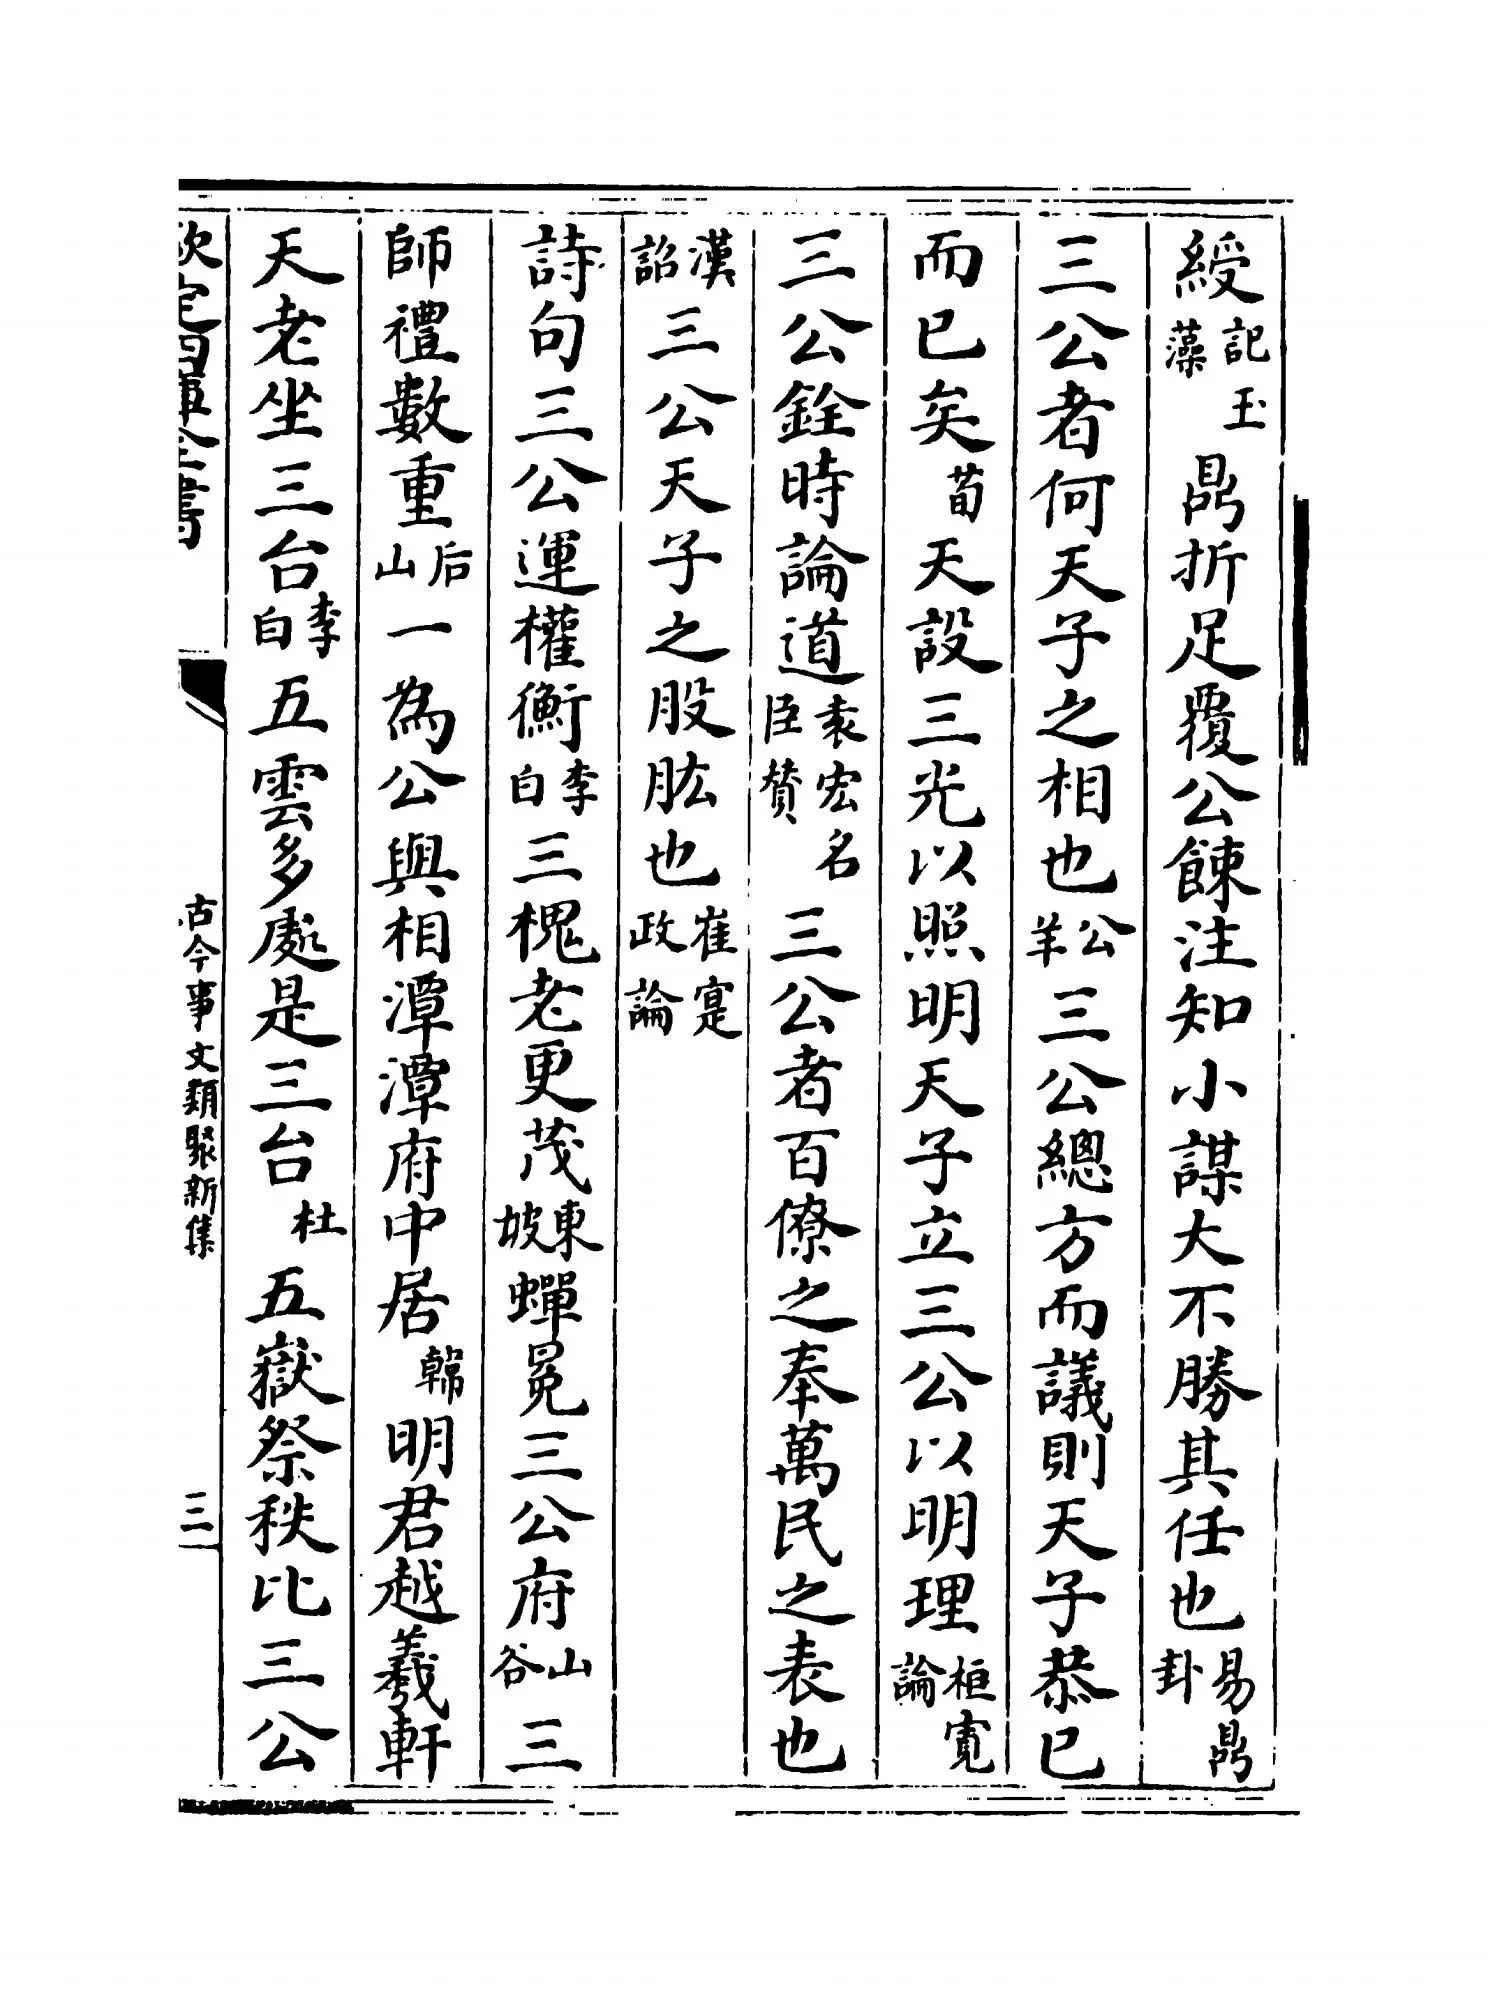 綬記玉藻鼎折足覆公餗注知小謀大不勝其任也易鼎卦
三公者何天子之相也公羊三公總方而議則天子恭已
而已矣荀天設三光以照明天子立三公以明理桓寛論
三公銓時論道袁宏名臣賛三公者百僚之奉萬民之表也
漢詔三公天子之股肱也崔寔政論
詩句三公運權衡李白三槐老更茂東坡蟬冕三公府山谷三
師禮數重后山一為公與相潭潭府中居韓明君越羲軒
天老坐三台李白五雲多處是三台杜五嶽祭秩比三公
欽定四庫全書
古今事文類聚新集
三